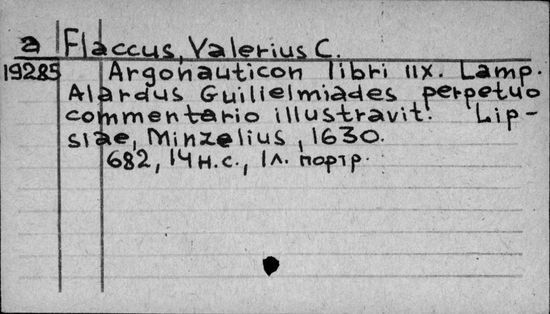 a Flaccus, Valerius C.
19285 Argonauticon libri IIX. Lamp.
Alardus Guilielmiades perpetuo
commentario illustravit. Lip-
siae, Minzelius, 1630.
682, 14 н.с., 1 л. портр.